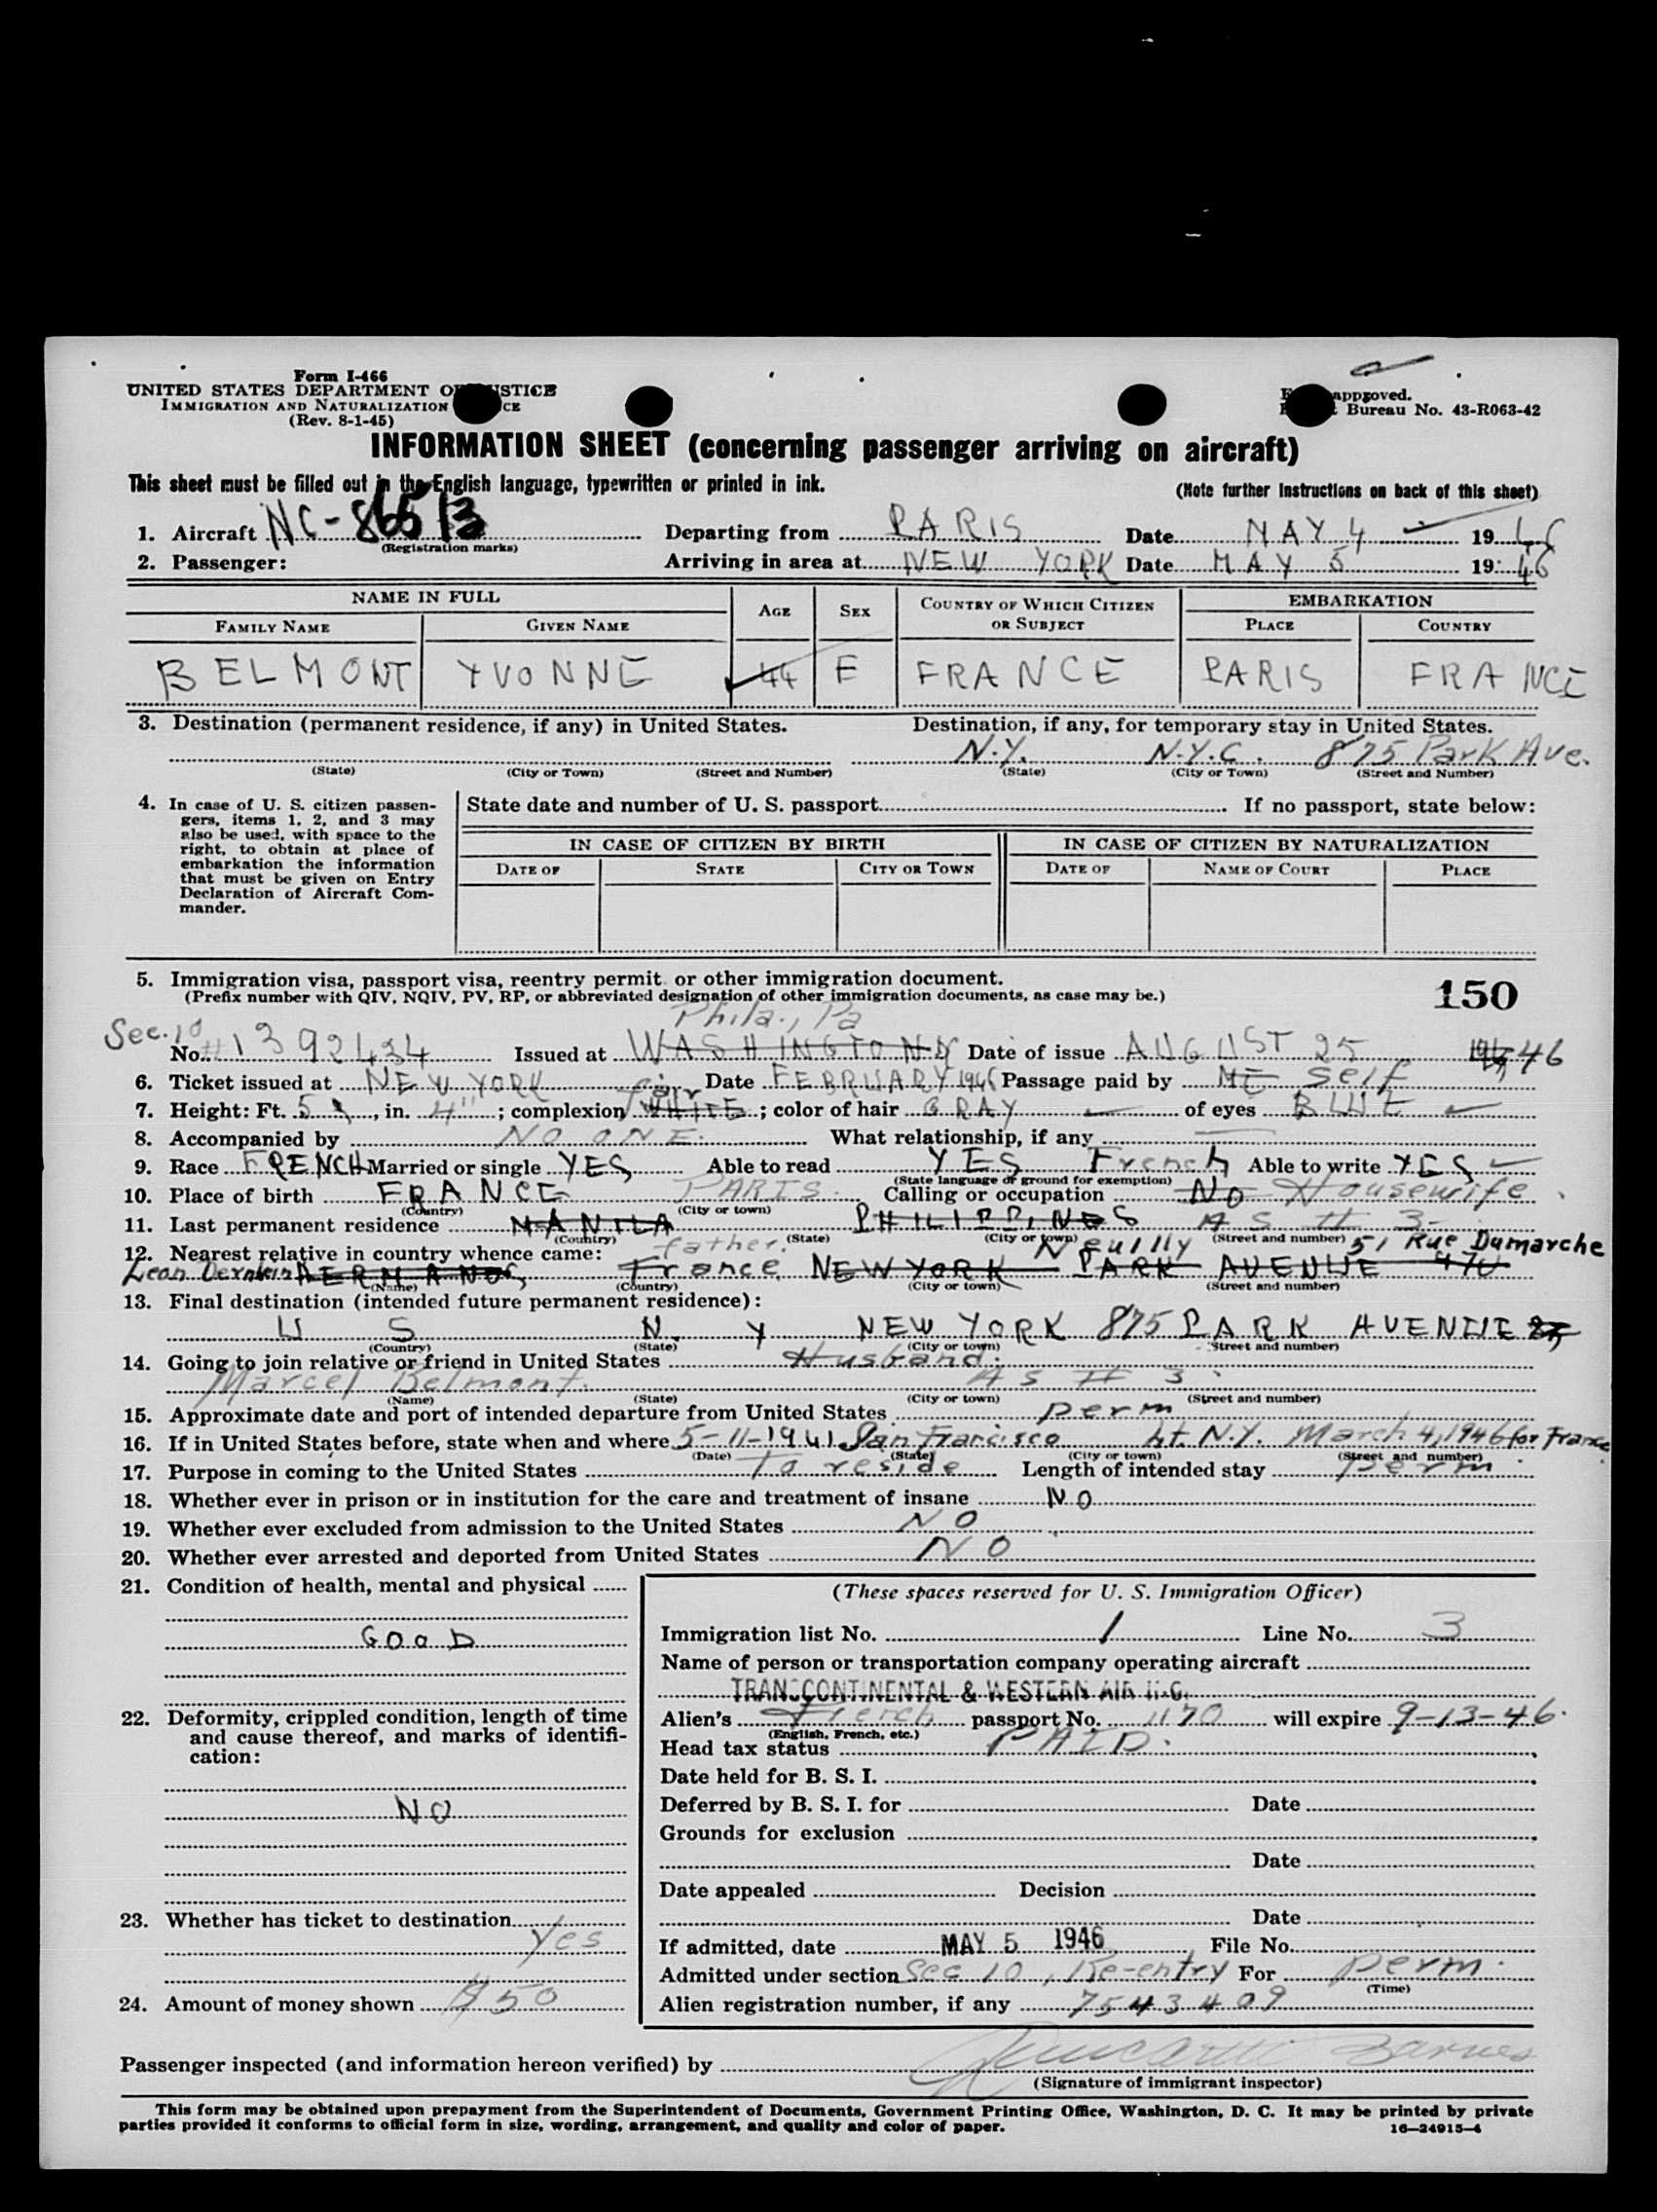 Form I-466
UNITED STATES DEPARTMENT OF JUSTICE
IMMIGRATION AND NATURALIZATION
(Rev. 8-1-45)
approved.
Bureau No. 43-R063-42
INFORMATION SHEET (concerning passenger arriving on aircraft)
This sheet must be filled out in the English language, typewritten or printed in ink.
(Note further instructions on back of this sheet)
1. Aircraft NC-86513 Departing from PARIS Date MAY 4 1946
(Registration marks)
2. Passenger: Arriving in area at NEW YORK Date MAY 5 1946
NAME IN FULL AGE SEX COUNTRY OF WHICH CITIZEN OR SUBJECT EMBARKATION
FAMILY NAME GIVEN NAME PLACE COUNTRY
BELMONT YVONNE 44 F FRANCE PARIS FRANCE
3. Destination (permanent residence, if any) in United States. Destination, if any, for temporary stay in United States.
N.Y. N.Y.C. 875 Park Ave.
(State) (City or Town) (Street and Number) (State) (City or Town) (Street and Number)
4. In case of U. S. citizen passen-
gers, items 1, 2, and 3 may
also be used, with space to the
right, to obtain at place of
embarkation the information
that must be given on Entry
Declaration of Aircraft Com-
mander.
State date and number of U. S. passport If no passport, state below:
IN CASE OF CITIZEN BY BIRTH IN CASE OF CITIZEN BY NATURALIZATION
DATE OF STATE CITY OR TOWN DATE OF NAME OF COURT PLACE
5. Immigration visa, passport visa, reentry permit or other immigration document.
(Prefix number with QIV, NQIV, PV, RP, or abbreviated designation of other immigration documents, as case may be.)
150
Phila., Pa
Sec. 10
No. #1392434 Issued at WASHINGTON Date of issue AUGUST 25 46
6. Ticket issued at NEW YORK Date FEBRUARY 1946 Passage paid by ME Self
7. Height: Ft. 5, in. 4"; complexion WHITE fair; color of hair GRAY of eyes BLUE
8. Accompanied by NO ONE. What relationship, if any
9. Race FRENCH Married or single YES Able to read YES French Able to write YES
(State language or ground for exemption)
10. Place of birth FRANCE PARIS Calling or occupation NO Housewife
(Country) (City or town)
11. Last permanent residence MANILA PHILIPPINES AS # 3-
(Country) (State) (City or town) (Street and number)
12. Nearest relative in country whence came: father. Neuilly 51 Rue Dumarche
Leon France NEW YORK PARK AVENUE 470
(Name) (Country) (City or town) (Street and number)
13. Final destination (intended future permanent residence):
U S N. Y NEW YORK 875 PARK AVENUE
(Country) (State) (City or town) (Street and number)
14. Going to join relative or friend in United States Husband.
Marcel Belmont. As # 3.
(Name) (State) (City or town) (Street and number)
15. Approximate date and port of intended departure from United States perm
16. If in United States before, state when and where 5-11-1941 San Francisco Lt. N.Y. March 4, 1946 for France
(Date) (State) (City or town) (Street and number)
17. Purpose in coming to the United States To reside Length of intended stay perm.
18. Whether ever in prison or in institution for the care and treatment of insane NO
19. Whether ever excluded from admission to the United States NO
20. Whether ever arrested and deported from United States NO
21. Condition of health, mental and physical
GOOD
22. Deformity, crippled condition, length of time
and cause thereof, and marks of identifi-
cation:
NO
23. Whether has ticket to destination
Yes
24. Amount of money shown $50
(These spaces reserved for U. S. Immigration Officer)
Immigration list No. 1 Line No. 3
Name of person or transportation company operating aircraft
TRANSCONTINENTAL & WESTERN AIR INC.
Alien's French passport No. 1170 will expire 9-13-46.
(English, French, etc.)
Head tax status PAID.
Date held for B. S. I.
Deferred by B. S. I. for Date
Grounds for exclusion
Date
Date appealed Decision
Date
If admitted, date MAY 5 1946 File No.
Admitted under section Sec 10, Re-entry For perm.
(Time)
Alien registration number, if any 7543409
Passenger inspected (and information hereon verified) by Barnes
(Signature of immigrant inspector)
This form may be obtained upon prepayment from the Superintendent of Documents, Government Printing Office, Washington, D. C. It may be printed by private
parties provided it conforms to official form in size, wording, arrangement, and quality and color of paper.
16—24915-4